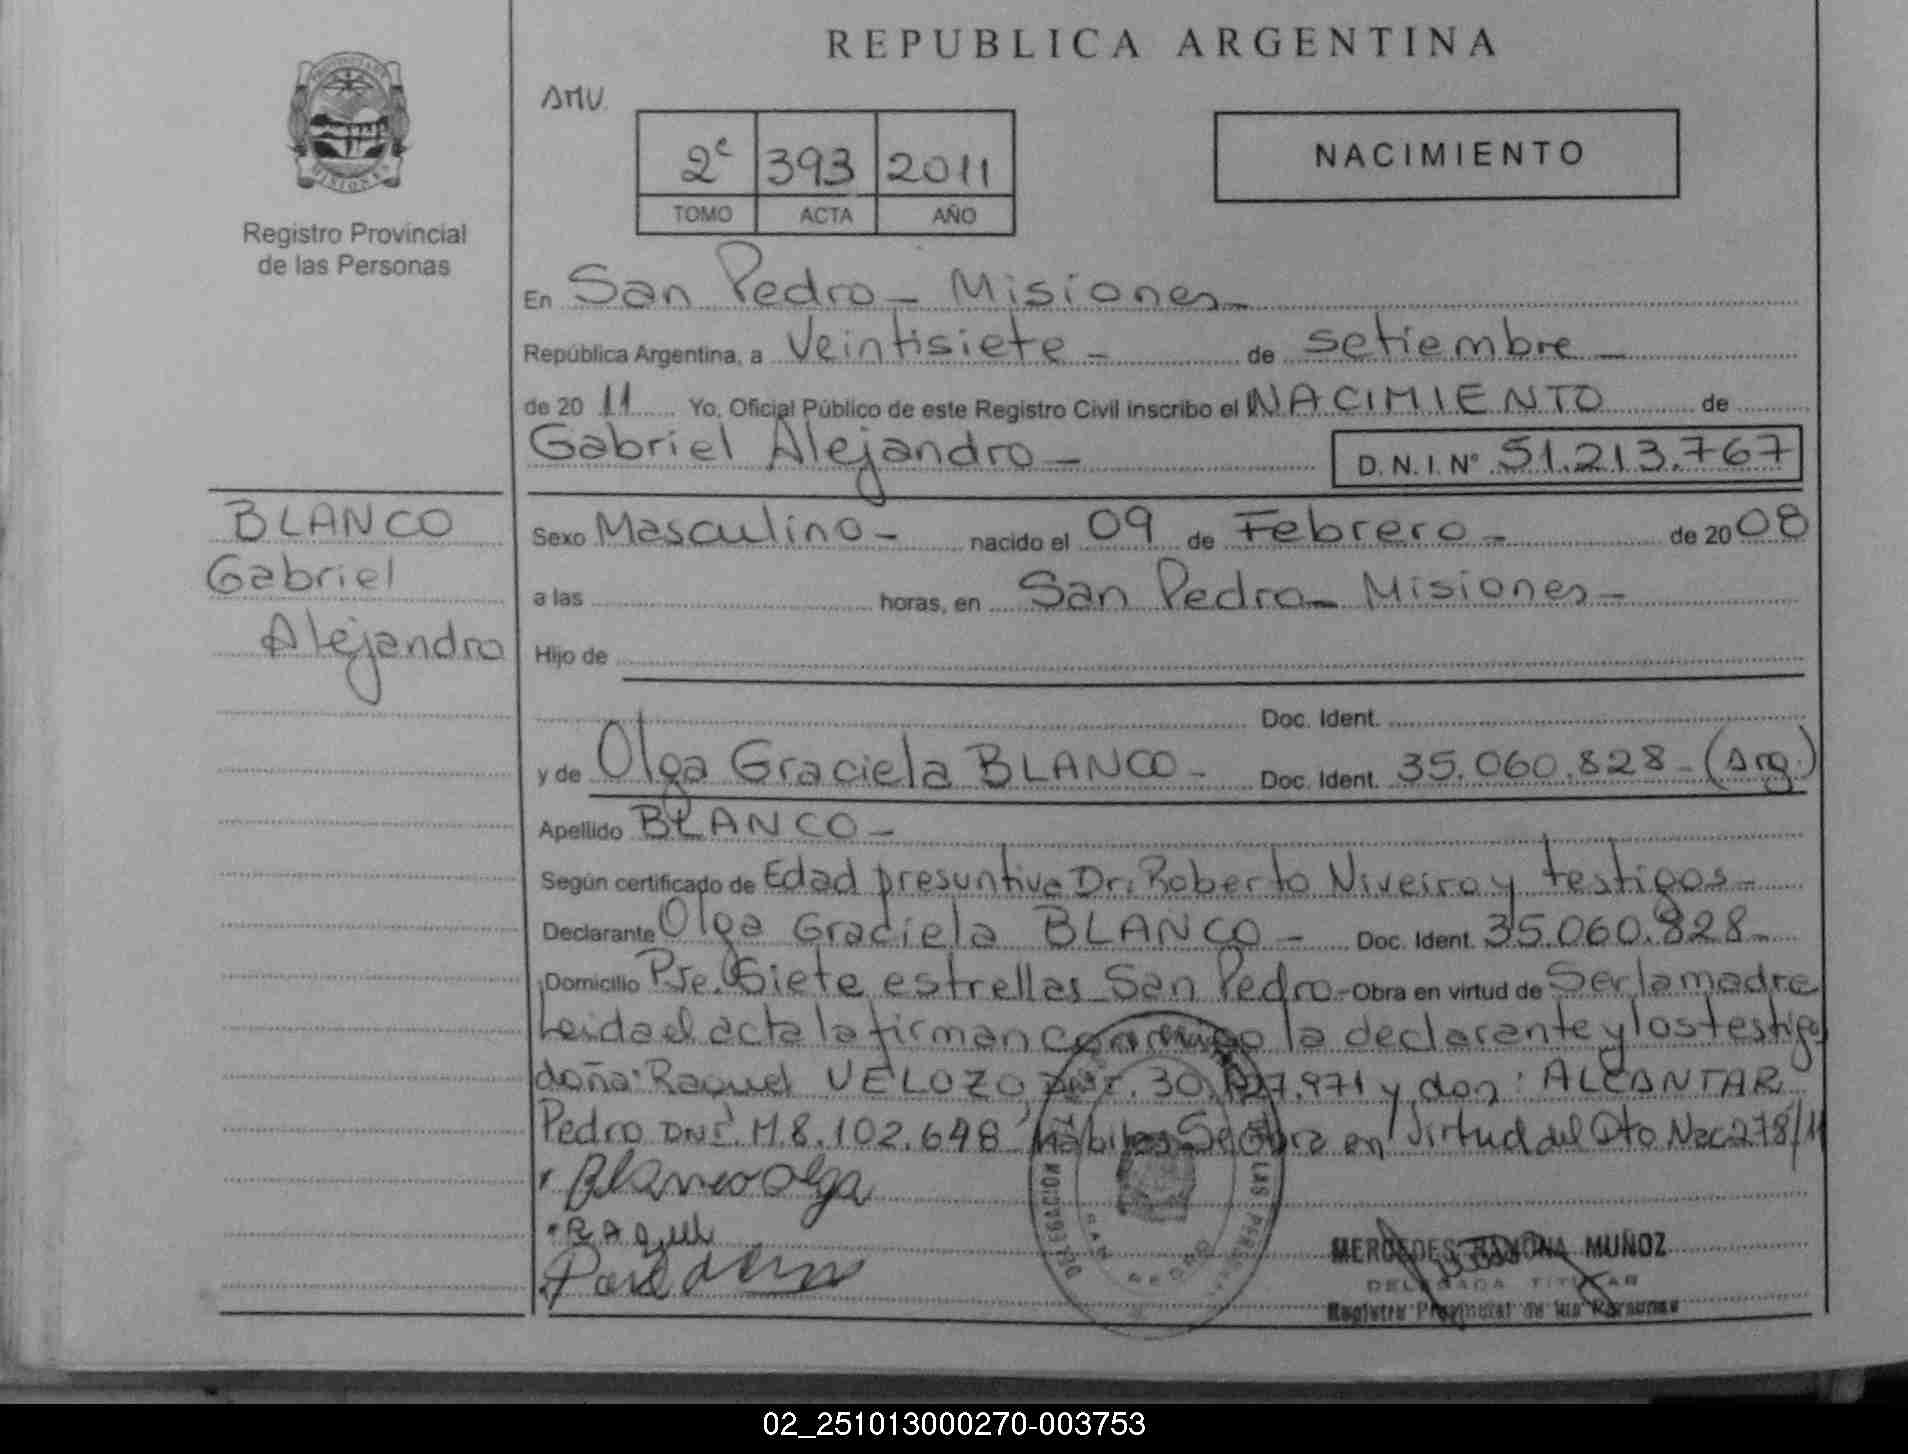 REPUBLICA ARGENTINA
PROVINCIA DE MISIONES
Registro Provincial
de las Personas
AMV.
2º 393 2011
TOMO ACTA AÑO
NACIMIENTO
En San Pedro - Misiones -
República Argentina, a Veintisiete - de setiembre -
de 20 11 Yo, Oficial Público de este Registro Civil inscribo el NACIMIENTO de
Gabriel Alejandro -
D.N.I. Nº 51.213.767
BLANCO
Gabriel
Alejandro
Sexo Masculino - nacido el 09 de Febrero - de 2008
a las horas, en San Pedro - Misiones -
Hijo de
Doc. Ident.
y de Olga Graciela BLANCO - Doc. Ident. 35.060.828 - (Arg.)
Apellido BLANCO -
Según certificado de Edad presuntiva Dr. Roberto Niveiro y testigos -
Declarante Olga Graciela BLANCO - Doc. Ident. 35.060.828 -
Domicilio Pje. Siete estrellas San Pedro - Obra en virtud de Ser la madre
Leida el acta la firman conmigo la declarante y los testigo
doña: Raquel VELOZO y don: ALCANTAR
Pedro DNI. M.8.102.648 hábiles Se obra en virtud del Dto Nac 278/11
Blanco olga
RAquel
MERCEDES RAMONA MUÑOZ
DELEGADA TITULAR
Registro Provincial de las Personas
DELEGACION
LAS PERSONAS
SAN PEDRO
02_251013000270-003753